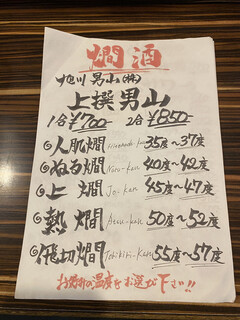 燗酒
旭川 男山(株)
上撰男山
1合¥700 2合¥850
人肌燗 Hitohada-kan 35度~37度
ぬる燗 Nuru-kan 40度~42度
上燗 Jo-kan 45度~47度
熱燗 Atsu-kan 50度~52度
飛切燗 Tobikiri-kan 55度~57度
お好みの温度をお選び下さい!!